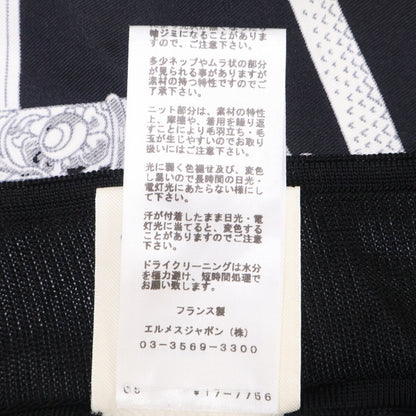 輪ジミになることがありま
すので、ご注意下さい。
多少ネップやムラ状の部分
が見られる事がありますが
素材の持つ特性ですのでご
了承下さい。
ニット部分は、素材の特性
上、摩擦や、着用を繰り返
すことにより毛羽立ち・毛
玉が生じやすいのでお取り
扱いにはご注意下さい。
光に弱く色褪せ及び、変色
し易いので長時間の日光・
電灯光にあたらない様にし
て下さい。
汗が付着したまま日光・電
灯光に当てると、変色する
ことがありますのでご注意
下さい。
ドライクリーニングは水分
を極力避け、短時間処理で
お願い致します。
フランス製
エルメスジャポン(株)
03-3569-3300
17-7756